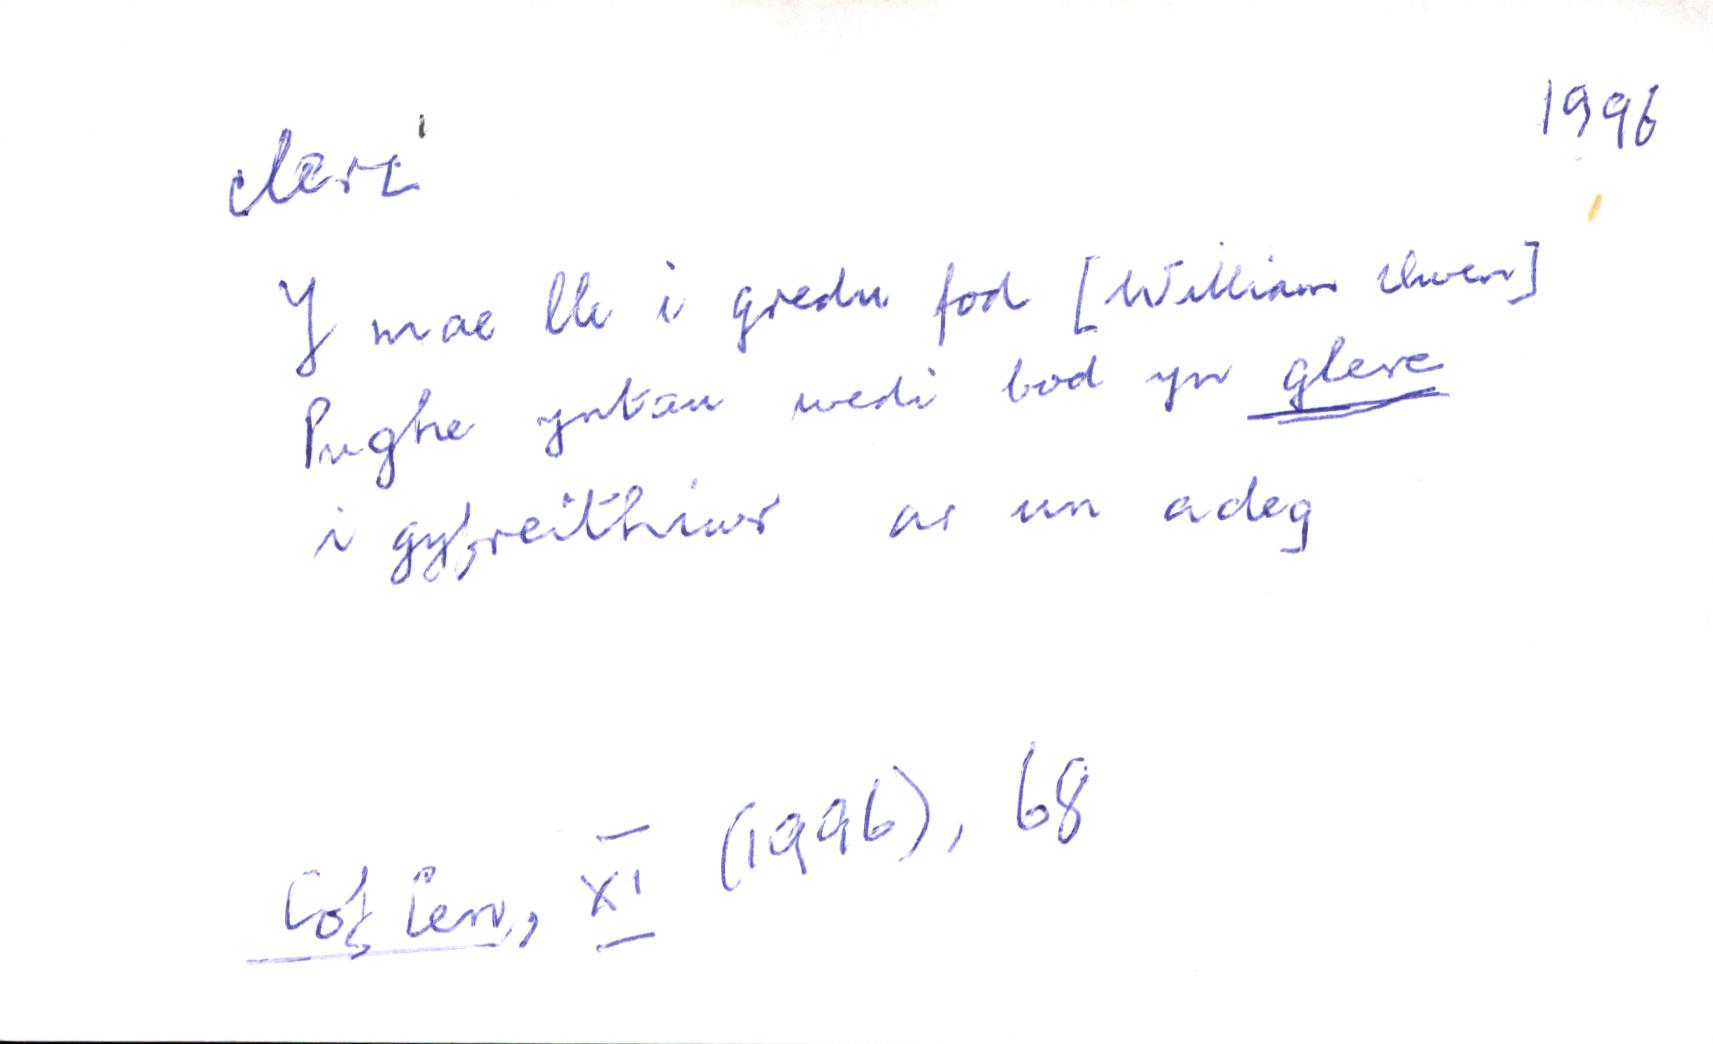 1996
clerc¹
Y mae lle i gredu fod [William Owen]
Pughe yntau wedi bod yn glerc
i gyfreithiwr ar un adeg
Cof Cen, XI (1996), 68